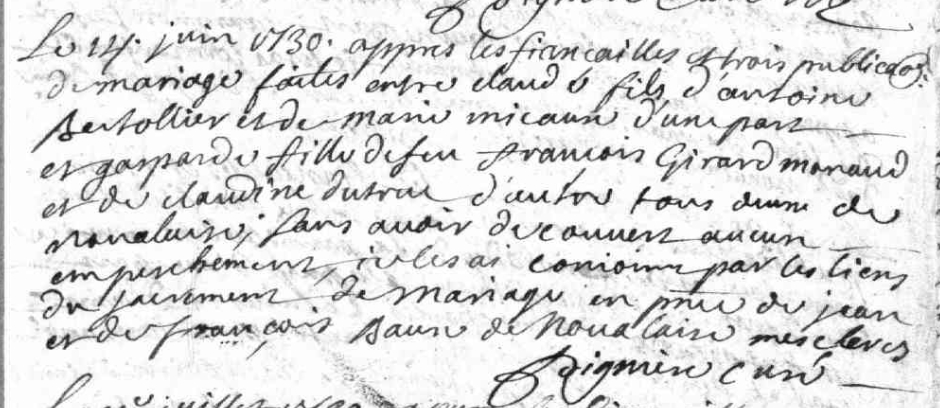 Le 14. juin 1730. appres les fiancailles et trois publicaõns
de mariage faites entre claude fils d'antoine
Bertollier et de marie micaud d'une part
et gasparde fille de feu francois Girard monaud
et de claudine dutruc d'autre tous deux de
novalaise, sans avoir decouvert aucun
empeschement, ie les ai conioint par les liens
du sacrement de mariage en pñce de jean
et de françois Baune de Novalaise mes clercs
curé
juillet